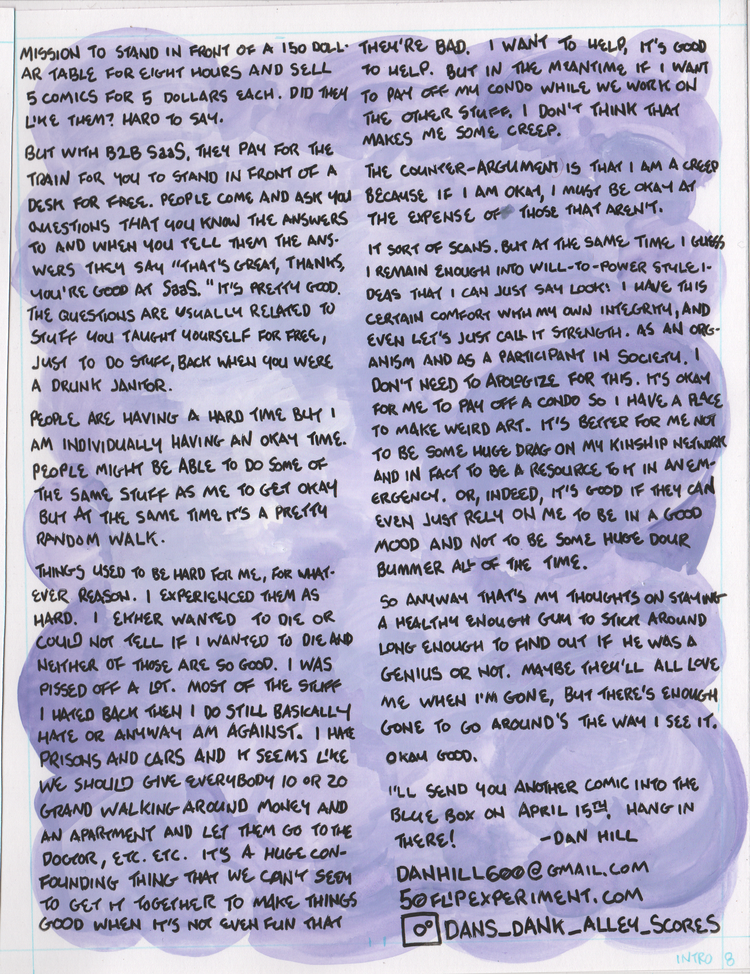 MISSION TO STAND IN FRONT OF A 150 DOLL-
AR TABLE FOR EIGHT HOURS AND SELL
5 COMICS FOR 5 DOLLARS EACH. DID THEY
LIKE THEM? HARD TO SAY.
BUT WITH B2B SaaS, THEY PAY FOR THE
TRAIN FOR YOU TO STAND IN FRONT OF A
DESK FOR FREE. PEOPLE COME AND ASK YOU
QUESTIONS THAT YOU KNOW THE ANSWERS
TO AND WHEN YOU TELL THEM THE ANS-
WERS THEY SAY "THAT'S GREAT, THANKS,
YOU'RE GOOD AT SaaS." IT'S PRETTY GOOD.
THE QUESTIONS ARE USUALLY RELATED TO
STUFF YOU TAUGHT YOURSELF FOR FREE,
JUST TO DO STUFF, BACK WHEN YOU WERE
A DRUNK JANITOR.
PEOPLE ARE HAVING A HARD TIME BUT I
AM INDIVIDUALLY HAVING AN OKAY TIME.
PEOPLE MIGHT BE ABLE TO DO SOME OF
THE SAME STUFF AS ME TO GET OKAY
BUT AT THE SAME TIME IT'S A PRETTY
RANDOM WALK.
THINGS USED TO BE HARD FOR ME, FOR WHAT-
EVER REASON. I EXPERIENCED THEM AS
HARD. I EITHER WANTED TO DIE OR
COULD NOT TELL IF I WANTED TO DIE AND
NEITHER OF THOSE ARE SO GOOD. I WAS
PISSED OFF A LOT. MOST OF THE STUFF
I HATED BACK THEN I DO STILL BASICALLY
HATE OR ANYWAY AM AGAINST. I HATE
PRISONS AND CARS AND IT SEEMS LIKE
WE SHOULD GIVE EVERYBODY 10 OR 20
GRAND WALKING AROUND MONEY AND
AN APARTMENT AND LET THEM GO TO THE
DOCTOR, ETC. ETC. IT'S A HUGE CON-
FOUNDING THING THAT WE CAN'T SEEM
TO GET IT TOGETHER TO MAKE THINGS
GOOD WHEN IT'S NOT EVEN FUN THAT
THEY'RE BAD. I WANT TO HELP, IT'S GOOD
TO HELP. BUT IN THE MEANTIME IF I WANT
TO PAY OFF MY CONDO WHILE WE WORK ON
THE OTHER STUFF, I DON'T THINK THAT
MAKES ME SOME CREEP.
THE COUNTER-ARGUMENT IS THAT I AM A CREEP
BECAUSE IF I AM OKAY, I MUST BE OKAY AT
THE EXPENSE OF THOSE THAT AREN'T.
IT SORT OF SCANS. BUT AT THE SAME TIME I GUESS
I REMAIN ENOUGH INTO WILL-TO-POWER STYLE I-
DEAS THAT I CAN JUST SAY LOOK: I HAVE THIS
CERTAIN COMFORT WITH MY OWN INTEGRITY, AND
EVEN LET'S JUST CALL IT STRENGTH. AS AN ORG-
ANISM AND AS A PARTICIPANT IN SOCIETY. I
DON'T NEED TO APOLOGIZE FOR THIS. IT'S OKAY
FOR ME TO PAY OFF A CONDO SO I HAVE A PLACE
TO MAKE WEIRD ART. IT'S BETTER FOR ME NOT
TO BE SOME HUGE DRAG ON MY KINSHIP NETWORK
AND IN FACT TO BE A RESOURCE TO IT IN AN EM-
ERGENCY. OR, INDEED, IT'S GOOD IF THEY CAN
EVEN JUST RELY ON ME TO BE IN A GOOD
MOOD AND NOT TO BE SOME HUGE DOUR
BUMMER ALL OF THE TIME.
SO ANYWAY THAT'S MY THOUGHTS ON STAYING
A HEALTHY ENOUGH GUY TO STICK AROUND
LONG ENOUGH TO FIND OUT IF HE WAS A
GENIUS OR NOT. MAYBE THEY'LL ALL LOVE
ME WHEN I'M GONE, BUT THERE'S ENOUGH
GONE TO GO AROUND'S THE WAY I SEE IT.
OKAY GOOD.
I'LL SEND YOU ANOTHER COMIC INTO THE
BLUE BOX ON APRIL 15TH. HANG IN
THERE! -DAN HILL
DANHILL600@GMAIL.COM
50FLIPEXPERIMENT.COM
DANS_DANK_ALLEY_SCORES
INTRO 8